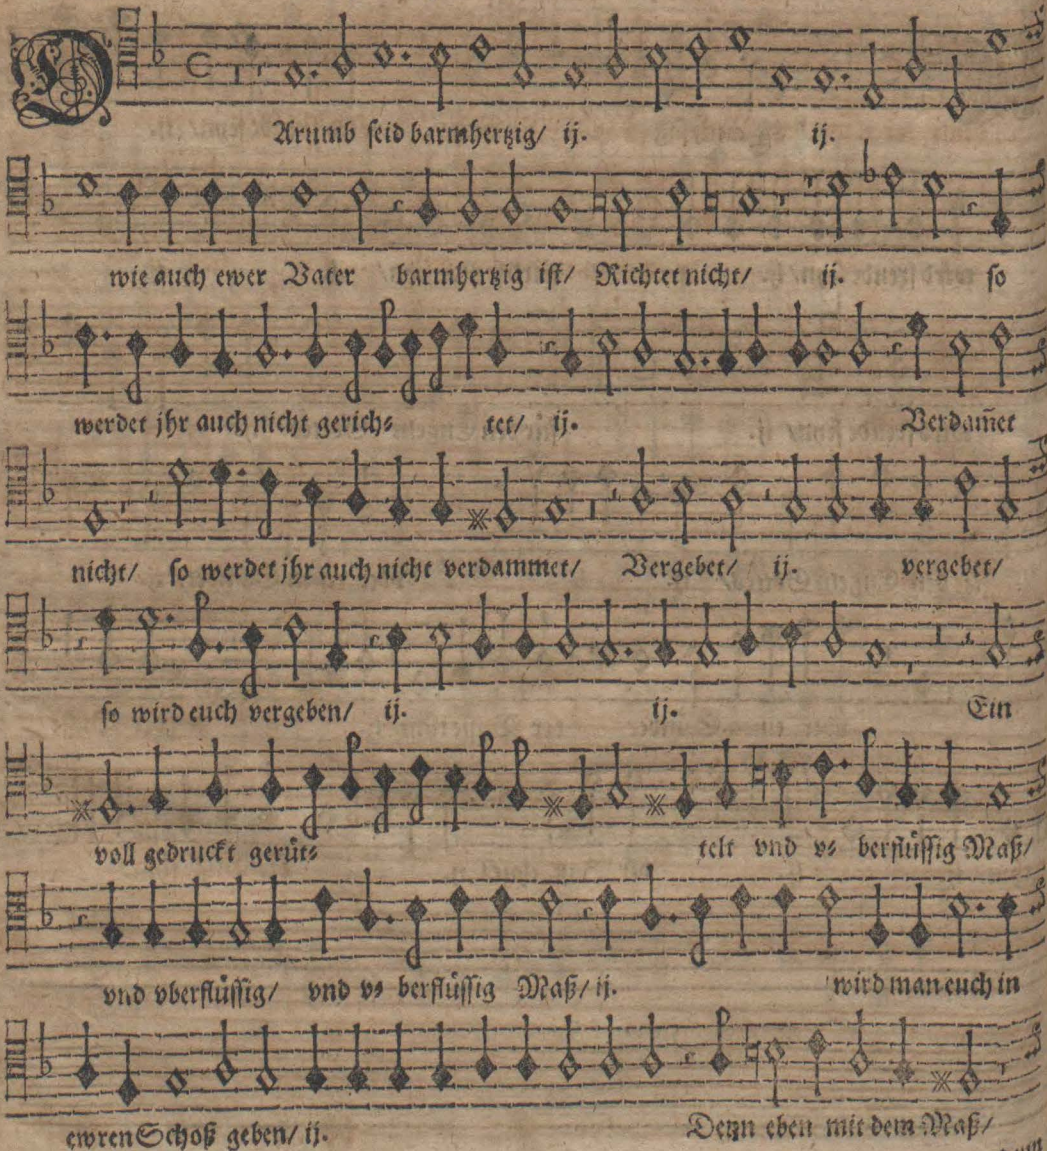 DArumb seid barmhertzig/ ij. ij.
wie auch ewer Vater barmhertzig ist/ Richtet nicht/ ij. so
werdet jhr auch nicht gerich⸗ tet/ ij. Verdam̃et
nicht/ so werdet jhr auch nicht verdammet/ Vergebet/ ij. vergebet/
so wird euch vergeben/ ij. ij. Ein
voll gedruckt gerüt⸗ telt vnd v⸗ berflüssig Maß/
vnd vberflüssig/ vnd v⸗ berflüssig Maß/ ij. wird man euch in
ewren Schoß geben/ ij. Denn eben mit dem Maß/